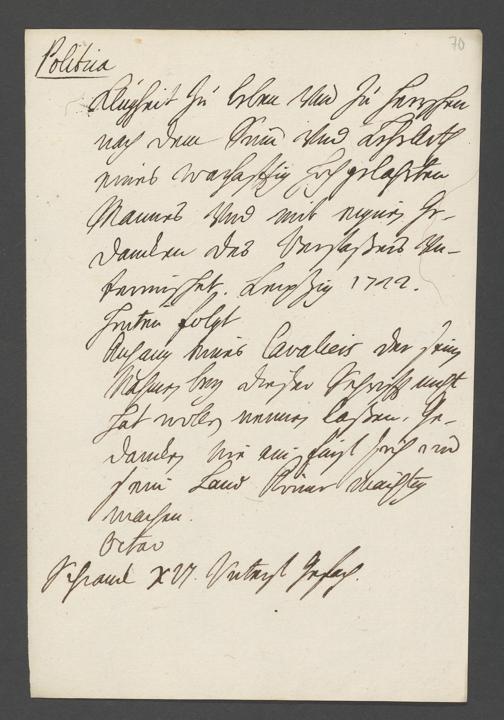 70
Politica
Klugheit zu leben und zu herrschen
nach dem Sinn und Lehrart
eines warhafftig hochgelahrten
Mannes und mit eignen Ge-
dancken des Verfaßers un-
termischet. Leipzig 1722.
hinten folgt
Anhang eines Cavaliers der seinen
Nahmen bey dieser Schrifft nicht
hat wollen nennen laßen. Ge-
dancken wie ein Fürst sich und
sein Land könne mächtig
machen.
Octav
Schranck XVI. Unterst Gefach.